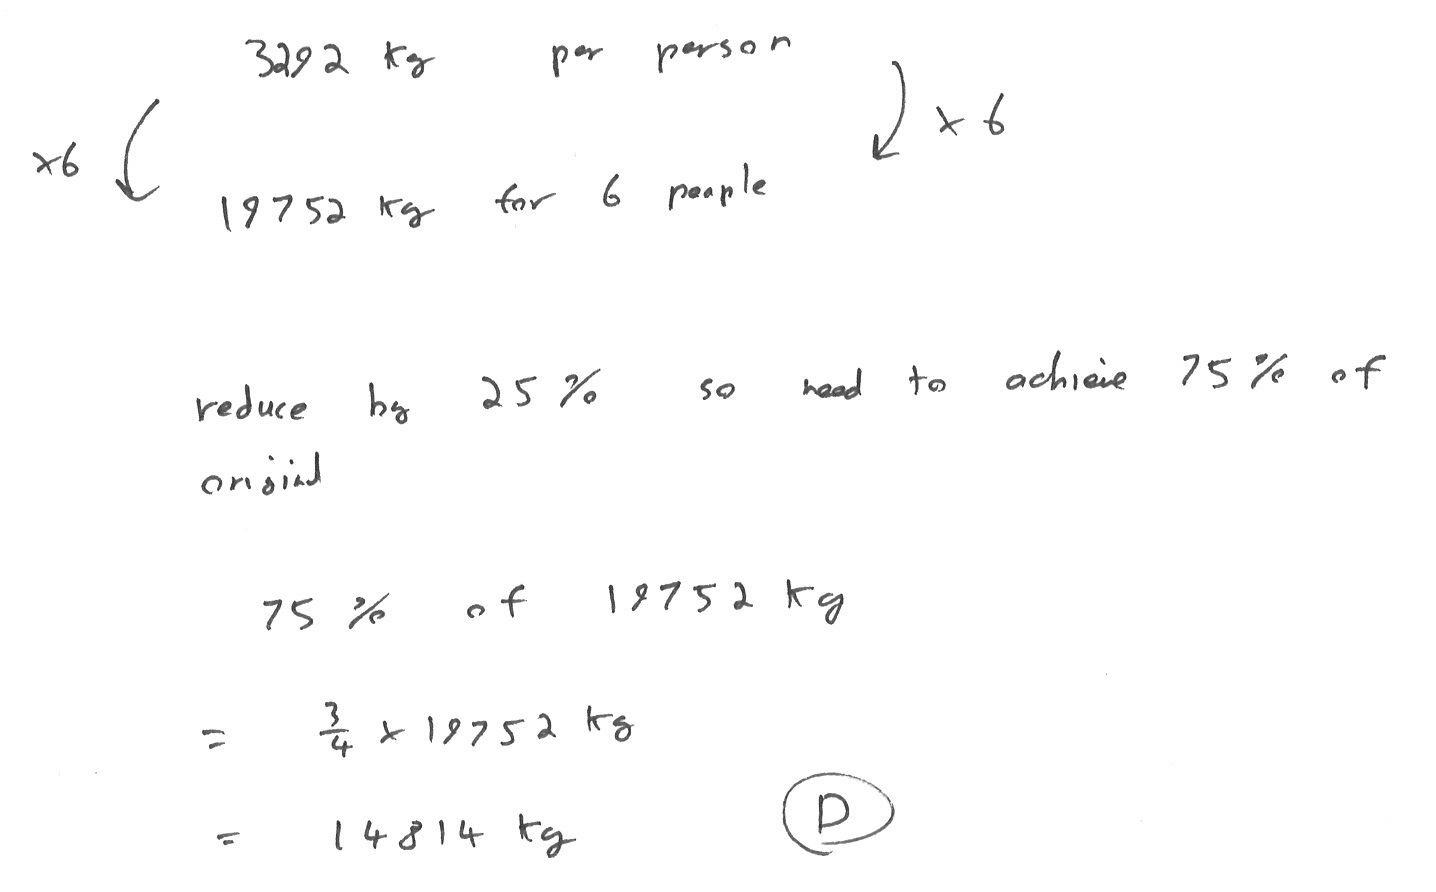 3292 kg per person
×6 × 6
19752 kg for 6 people
reduce by 25% so need to achieve 75% of
original
75% of 19752 kg
= 3/4 × 19752 kg
= 14814 kg D